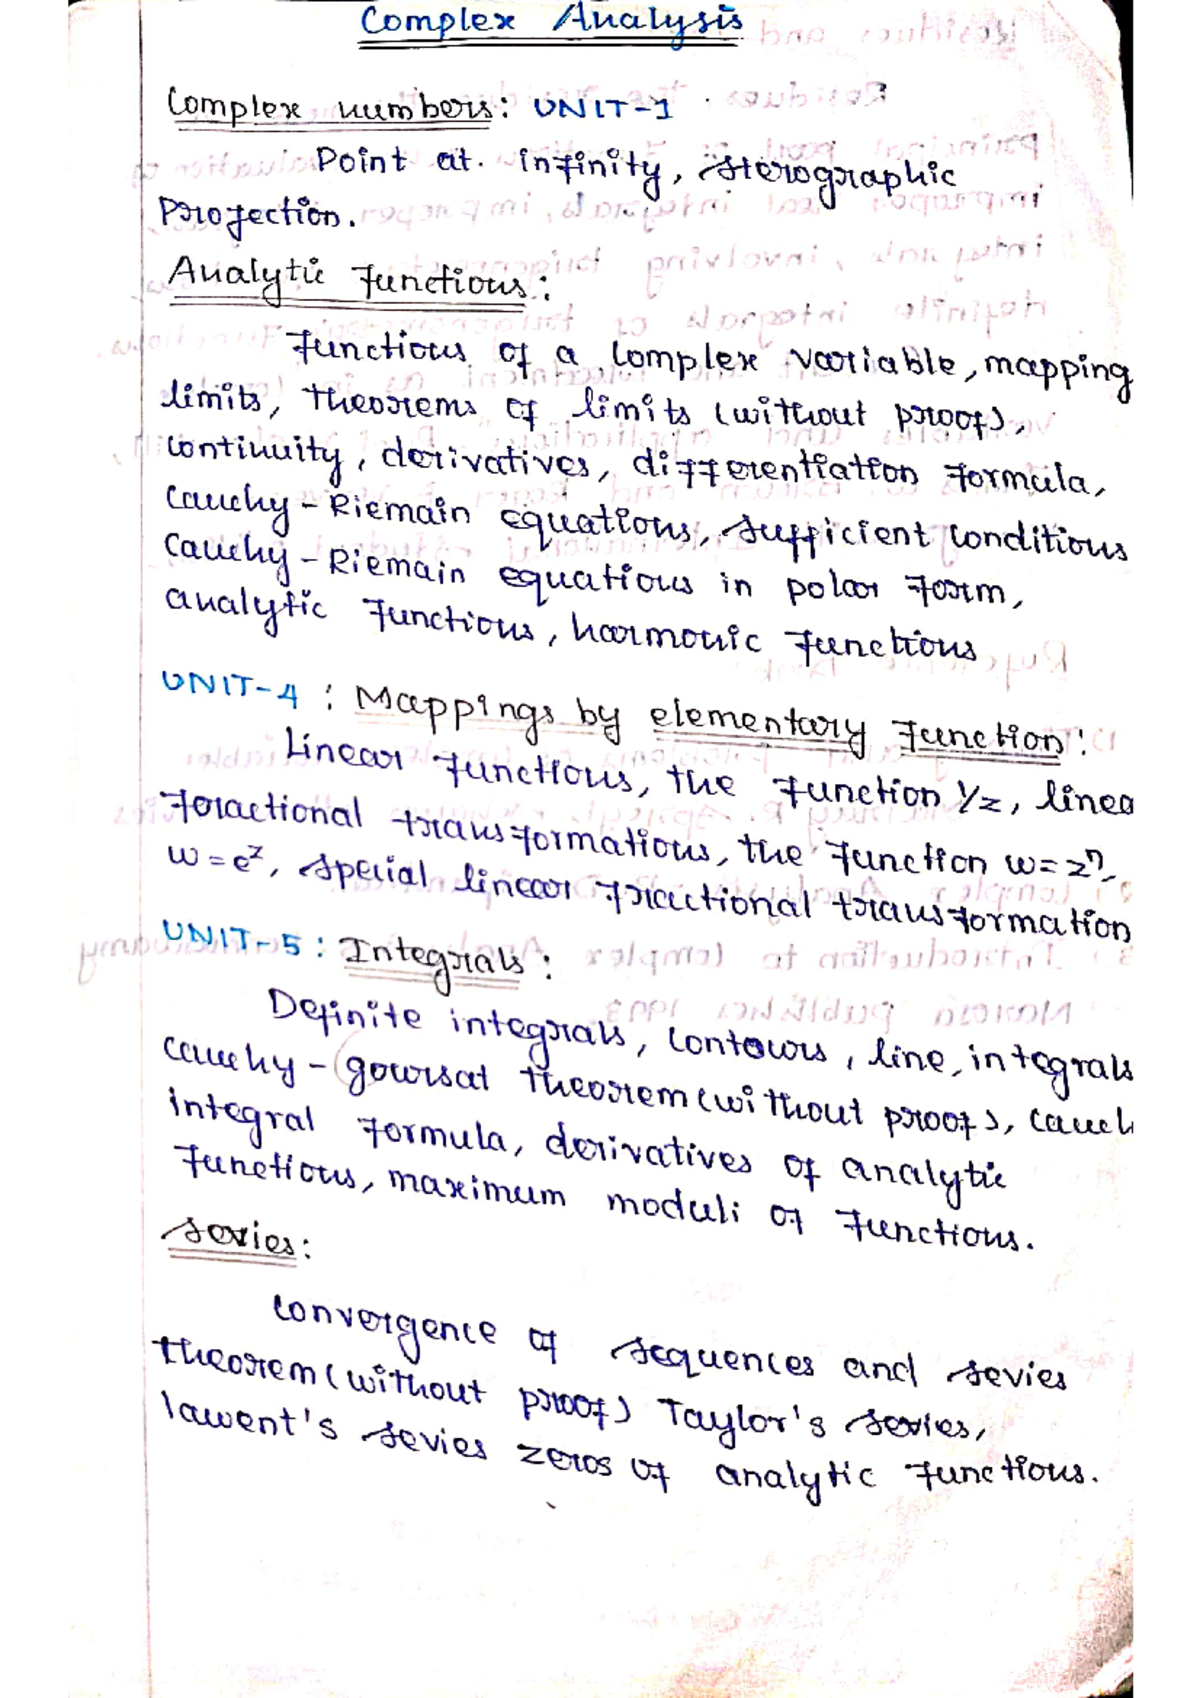 Complex Analysis
Complex numbers: UNIT-1
Point at. infinity, sterographic
Projection.
Analytic functions:
Functions of a complex variable, mapping
limits, theorems of limits (without proof),
continuity, derivatives, differentiation formula,
Cauchy-Riemain equations, sufficient conditions
Cauchy-Riemain equations in polar form,
analytic functions, harmonic functions
UNIT-4 : Mappings by elementary function:
Linear functions, the function 1/z, linea
foractional transformations, the function w=zⁿ,
w=e^z, special linear fractional transformation
UNIT-5 : Integrals:
Definite integrals, contours, line, integrals
Cauchy-goursat theorem (without proof), cauch
integral formula, derivatives of analytic
functions, maximum moduli of functions.
Series:
Convergence of sequences and series
theorem (without proof) Taylor's series,
laurent's series zeros of analytic functions.